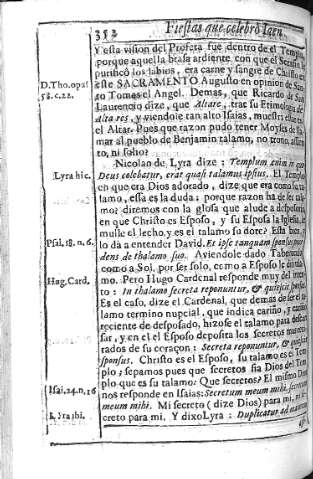 352 Fiestas que celebrò Iaen,
Y esta vision del Profeta fue dentro de el Templo
porque aquella brasa ardiente con que el Serafin le
purificò los labios, era carne y sangre de Christo en
D.Tho.opus
este SACRAMENTO Augusto en opinion de San-
58.c.22.
to Tomas el Angel. Demas, que Ricardo de San
Laurencio dize, que Altare, trae su Etimologia de
Alta res, y viendole tan alto Isaias, muestra estar en
el Altar. Pues que razon pudo tener Moyses de lla-
mar al pueblo de Benjamin talamo, no trono, assien-
to, ni solio?
Nicolao de Lyra dize: Templum enim in quo
Lyra hic.
Deus colebatur, erat quasi talamus ipsius. El Templo
en que era Dios adorado, dize que era como su ta-
lamo, essa es la duda: porque razon ha de ser tala-
mo? diremos con la glosa que alude a desposorio
en que Christo es Esposo, y su Esposa la Iglesia,
mulle el lecho, y es el talamo so dore? Esta bien,
Psal.18.n.6.
lo dà a entender David. Et ipse tanquam sponsus proce-
dens de thalamo suo. Aviendole dado Tabernaculo
como a Sol, por ser solo, como a Esposo le diò tala-
Hug.Card.
mo. Pero Hugo Cardenal responde muy del inten-
to: In thalamo secreta reponuntur, &
Es el caso, dize el Cardenal, que demas de ser el ta-
lamo termino nupcial, que indica cariño, y
reciente de desposado, hizose el talamo para descan-
sar, y en el el Esposo deposita los secretos mas reti-
rados de su coraçon: Secreta reponuntur, &
sponsus. Christo es el Esposo, su talamo es el Tem-
plo; sepamos pues que secretos fia Dios del Tem-
plo que es su talamo? Que secretos? El mismo Dios
Isai.24.n.16
nos responde en Isaias: Secretum meum mihi, secretum
meum mihi. Mi secreto (dize Dios) para mi, mi se-
Lyra ibi.
creto para mi. Y dixo Lyra: Duplicatur ad maiorem